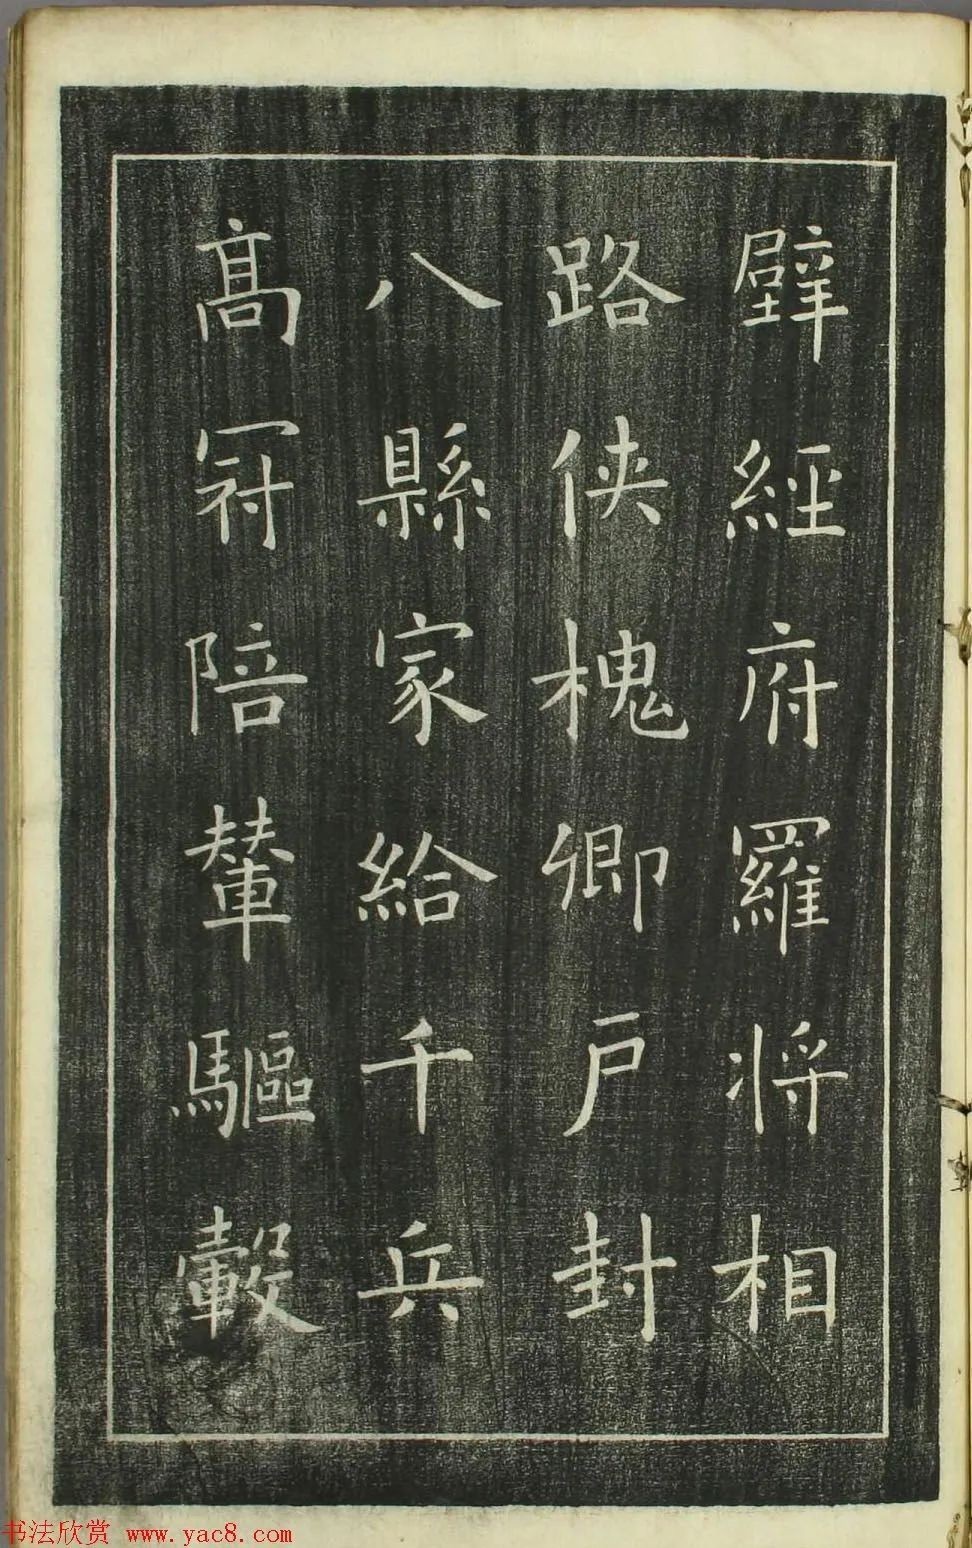 壁經府羅將相
路俠槐卿戶封
八縣家給千兵
高冠陪輦驅轂
书法欣赏 www.yac8.com